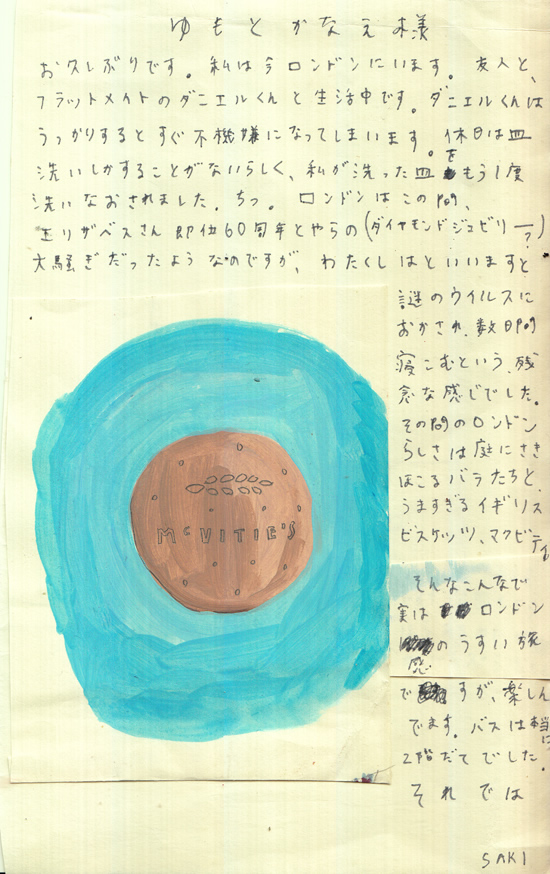 ゆもとかなえ様
お久しぶりです。私は今ロンドンにいます。友人と、
フラットメイトのダニエルくんと生活中です。ダニエルくんは
うっかりするとすぐ不機嫌になってしまいます。休日は皿
洗いしかすることがないらしく、私が洗った皿をもう1度
洗いなおされました。ちっ。ロンドンはこの間、
エリザベスさん即位60周年とやらの(ダイヤモンドジュビリー?)
大騒ぎだったようなのですが、わたくしはといいますと
謎のウイルスに
おかされ、数日間
寝こむという、残
念な感じでした。
その間のロンドン
らしさは庭にさき
ほこるバラたちと、
うますぎるイギリス
ビスケッツ、マクビティ
McVITIE'S
そんなこんなで
実はロンドン
のうすい旅
感
ですが、楽しん
でます。バスは本当に
2階だてでした。
それでは
SAKI